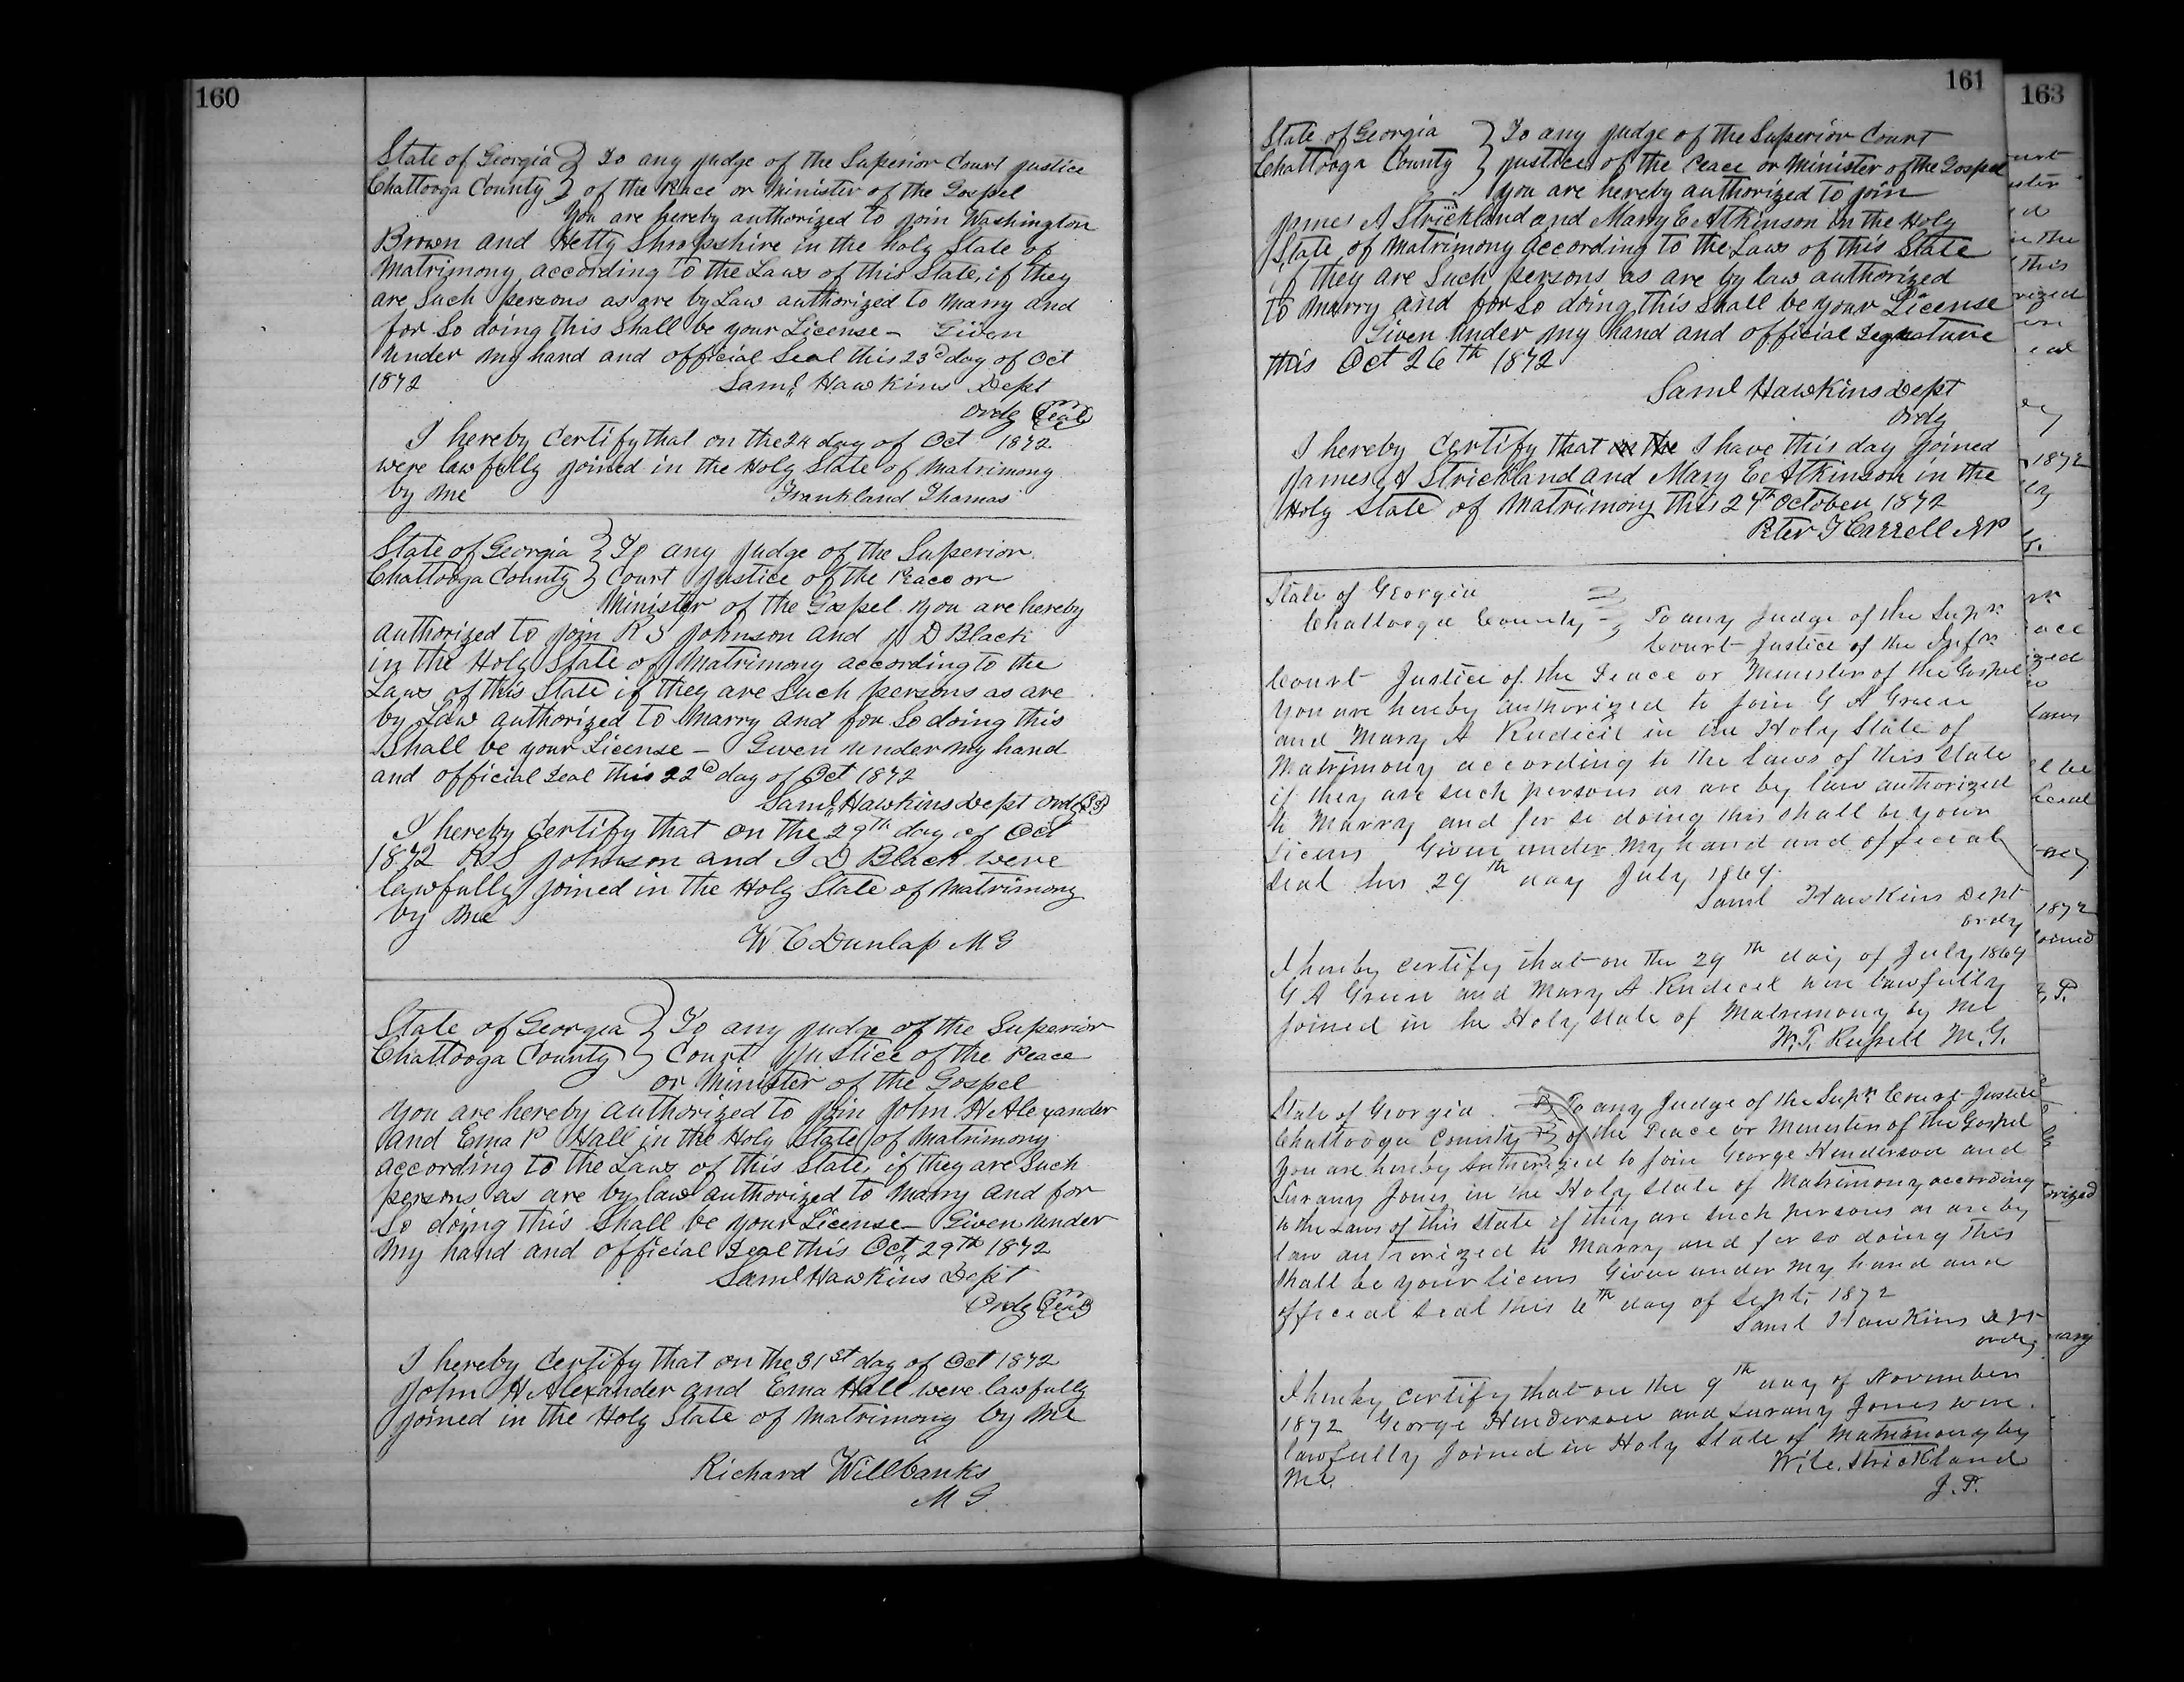 160
State of Georgia } To any judge of the Superior Court justice
Chattooga County } of the Peace or Minister of the Gospel
You are hereby authorized to join Washington
Brown and Hetty Shropshire in the holy State of
Matrimony, according to the Laws of this State, if they
are Such persons as are by Law authorized to marry and
for So doing this Shall be your License - Given
under my hand and official Seal this 23d day of Oct
1872 Saml Hawkins Dept
Ordy Seal
I hereby Certify that on the 24 day of Oct 1872
were lawfully joined in the Holy State of Matrimony
by me Frankland Thomas
State of Georgia } To any judge of the Superior
Chattooga County } Court justice of the Peace or
Minister of the Gospel you are hereby
authorized to join R S Johnson and J D Black
in the Holy State of Matrimony according to the
Laws of this State if they are Such persons as are
by Law authorized to Marry and for So doing this
Shall be your License - Given under my hand
and official Seal this 22d day of Oct 1872
Saml Hawkins Dept Ordy
I hereby Certify that on the 29th day of Oct
1872 R S Johnson and J D Black were
lawfully joined in the Holy State of Matrimony
by me
W C Dunlap M G
State of Georgia } To any judge of the Superior
Chattooga County } Court justice of the Peace
or Minister of the Gospel
you are hereby authorized to join John H Alexander
and Ema P Hall in the Holy State of Matrimony
according to the Laws of this State, if they are Such
persons as are by law authorized to Marry and for
So doing this Shall be your License - Given under
my hand and official Seal this Oct 29th 1872
Saml Hawkins Dept
Ordy Seal
I hereby Certify that on the 31st day of Oct 1872
John H Alexander and Ema Hall were lawfully
joined in the Holy State of Matrimony by me
Richard Willbanks
M G
161
State of Georgia } To any judge of the Superior Court
Chattooga County } justice of the Peace or Minister of the Gospel
you are hereby authorized to join
James A Strickland and Mary E Atkinson in the Holy
State of Matrimony according to the Laws of this State
if they are Such persons as are by law authorized
to Marry and for So doing this Shall be your License
Given under my hand and official Signature
this Oct 26th 1872
Saml Hawkins Dept
Ordy
I hereby Certify that on the I have this day joined
James A Strickland and Mary E Atkinson in the
Holy State of Matrimony this 27th October 1872
Peter T Carrell NP
State of Georgia
Chattooga County } To any Judge of the Supr
Court Justice of the Infr
Court Justice of the Peace or Minister of the Gospel
You are hereby authorized to join G A Green
and Mary A Rudicil in the Holy State of
Matrimony according to the laws of this State
if they are such persons as are by law authorized
to Marry and for so doing this shall be your
licens Given under my hand and official
seal this 29th day July 1869.
Saml Hawkins Dept
Ordy
I hereby certify that on the 29th day of July 1869
G A Green and Mary A Rudicil were lawfully
joined in the Holy State of Matrimony by me
W. T. Russell M. G.
State of Georgia } To any Judge of the Supr Court Justice
Chattooga County } of the Peace or Minister of the Gospel
You are hereby authorized to join George Henderson and
Surany Jones in the Holy State of Matrimony according
to the Laws of this State if they are such persons as are by
law authorized to Marry and for so doing this
shall be your licens Given under my hand and
official seal this 6th day of Sept. 1872
Saml Hawkins Dept
Ordy
I hereby certify that on the 9th day of November
1872 George Henderson and Surany Jones were
lawfully joined in Holy State of Matrimony by
me. W. C. Strickland
J. P.
163
this
1872
laws
1872